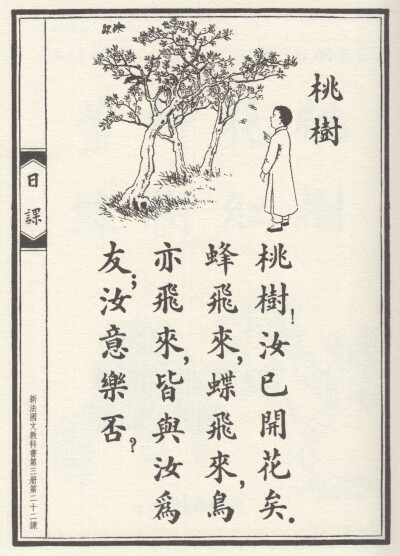 桃樹
桃樹！汝已開花矣．
蜂飛來，蝶飛來，鳥
亦飛來，皆與汝為
友；汝意樂否？
日課
新法國文教科書第三册第二十二課